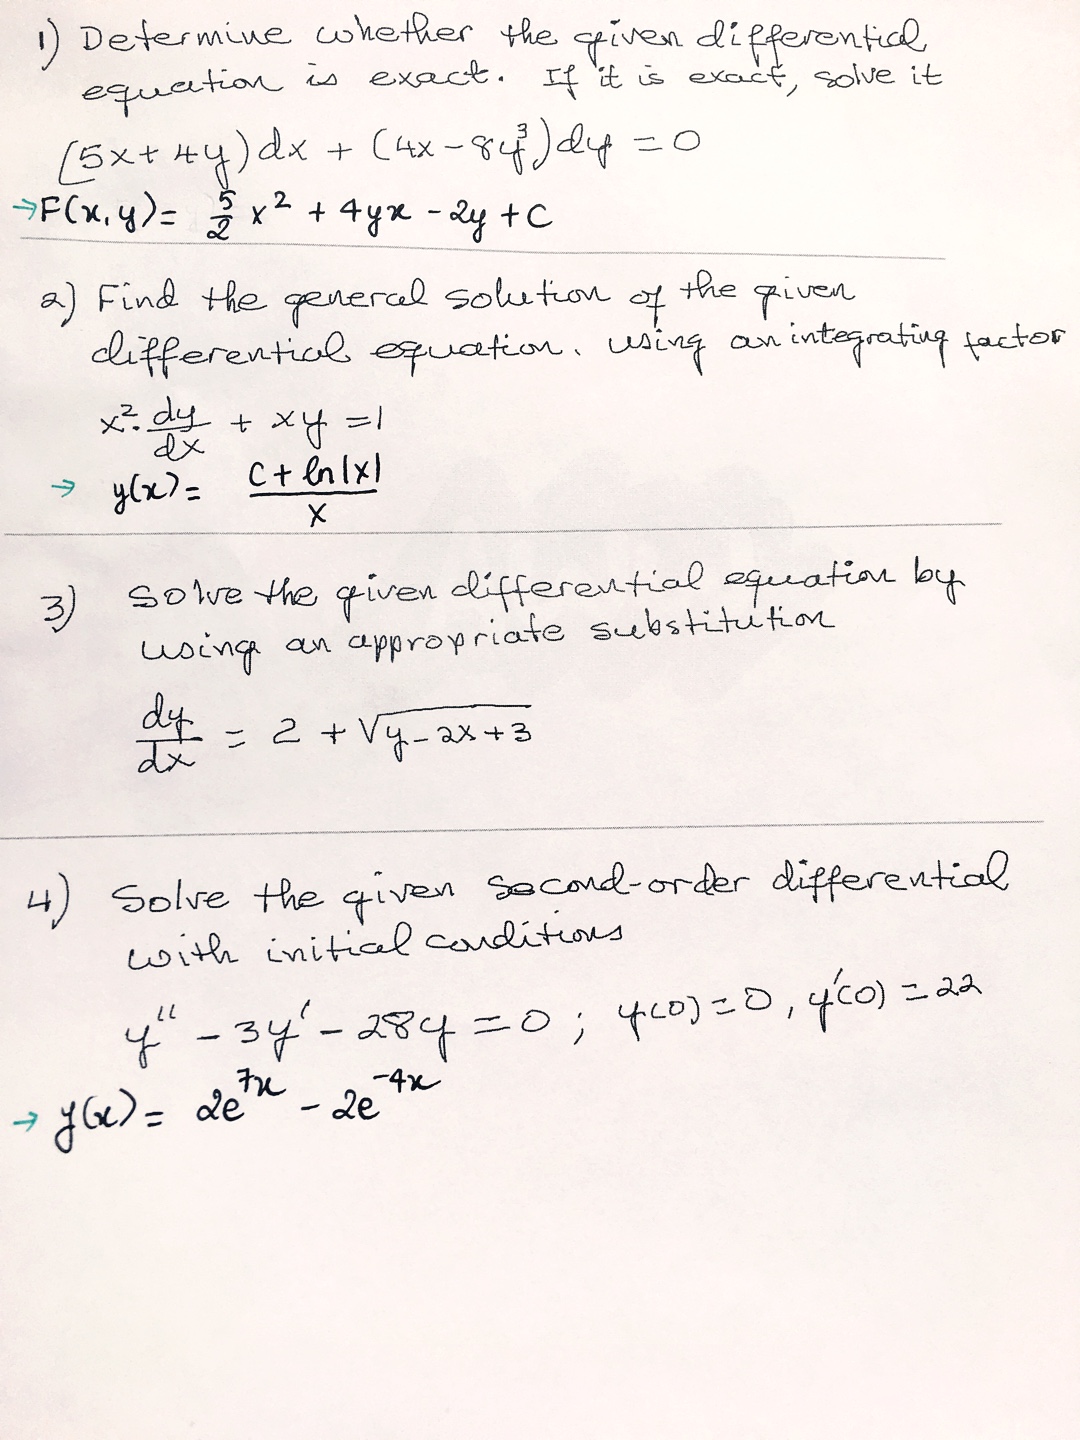 1) Determine whether the given differential
equation is exact. If it is exact, solve it
(5x + 4y) dx + (4x - 8y³) dy = 0
→ F(x, y) = 5/2 x² + 4yx - 2y + C
2) Find the general solution of the given
differential equation. using an integrating factor
x² · dy/dx + xy = 1
→ y(x) = C + ln|x| / x
3) Solve the given differential equation by
using an appropriate substitution
dy/dx = 2 + √y - 2x + 3
4) Solve the given second-order differential
with initial conditions
y'' - 3y' - 28y = 0 ; y(0) = 0, y'(0) = 22
→ y(x) = 2e⁷ˣ - 2e⁻⁴ˣ